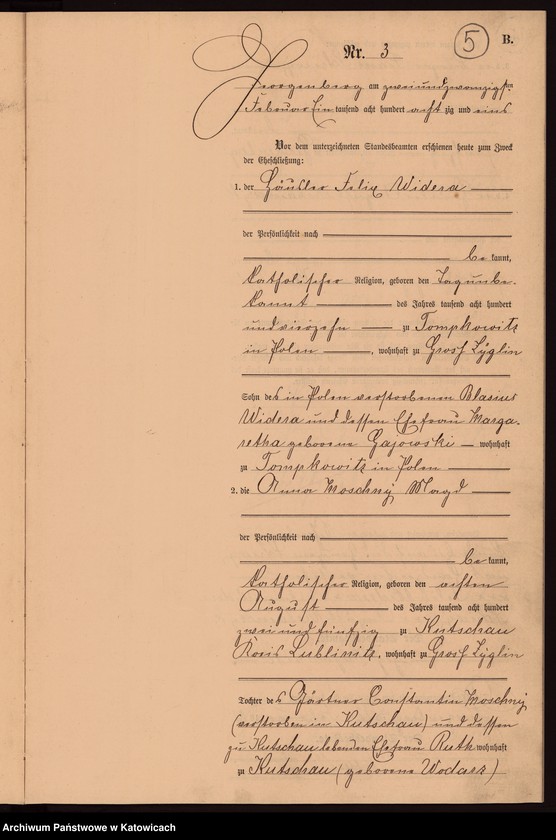 5
B.
Nr. 3
Georgenberg am zweiundzwanzigsten
Februar Ein tausend acht hundert achtzig und eins
Vor dem unterzeichneten Standesbeamten erschienen heute zum Zweck
der Eheschließung:
1. der Häusler Felix Widera
der Persönlichkeit nach
be kannt,
katholischer Religion, geboren den Tag unbe-
kannt des Jahres tausend acht hundert
und vierzehn zu Tompkowitz
in Polen, wohnhaft zu Grosz Zyglin
Sohn des in Polen verstorbenen Blasius
Widera und dessen Ehefrau Marga-
retha geborene Gajowski wohnhaft
zu Tompkowitz in Polen
2. die Anna Moschny Magd
der Persönlichkeit nach
be kannt,
katholischer Religion, geboren den achten
August des Jahres tausend acht hundert
zwei und fünfzig zu Kutschau
Kreis Lublinitz, wohnhaft zu Grosz Zyglin
Tochter des Gärtner Constantin Moschny
(verstorben in Kutschau) und dessen
zu Kutschau lebenden Ehefrau Ruth wohnhaft
zu Kutschau (geborene Wodarz)
Archiwum Państwowe w Katowicach